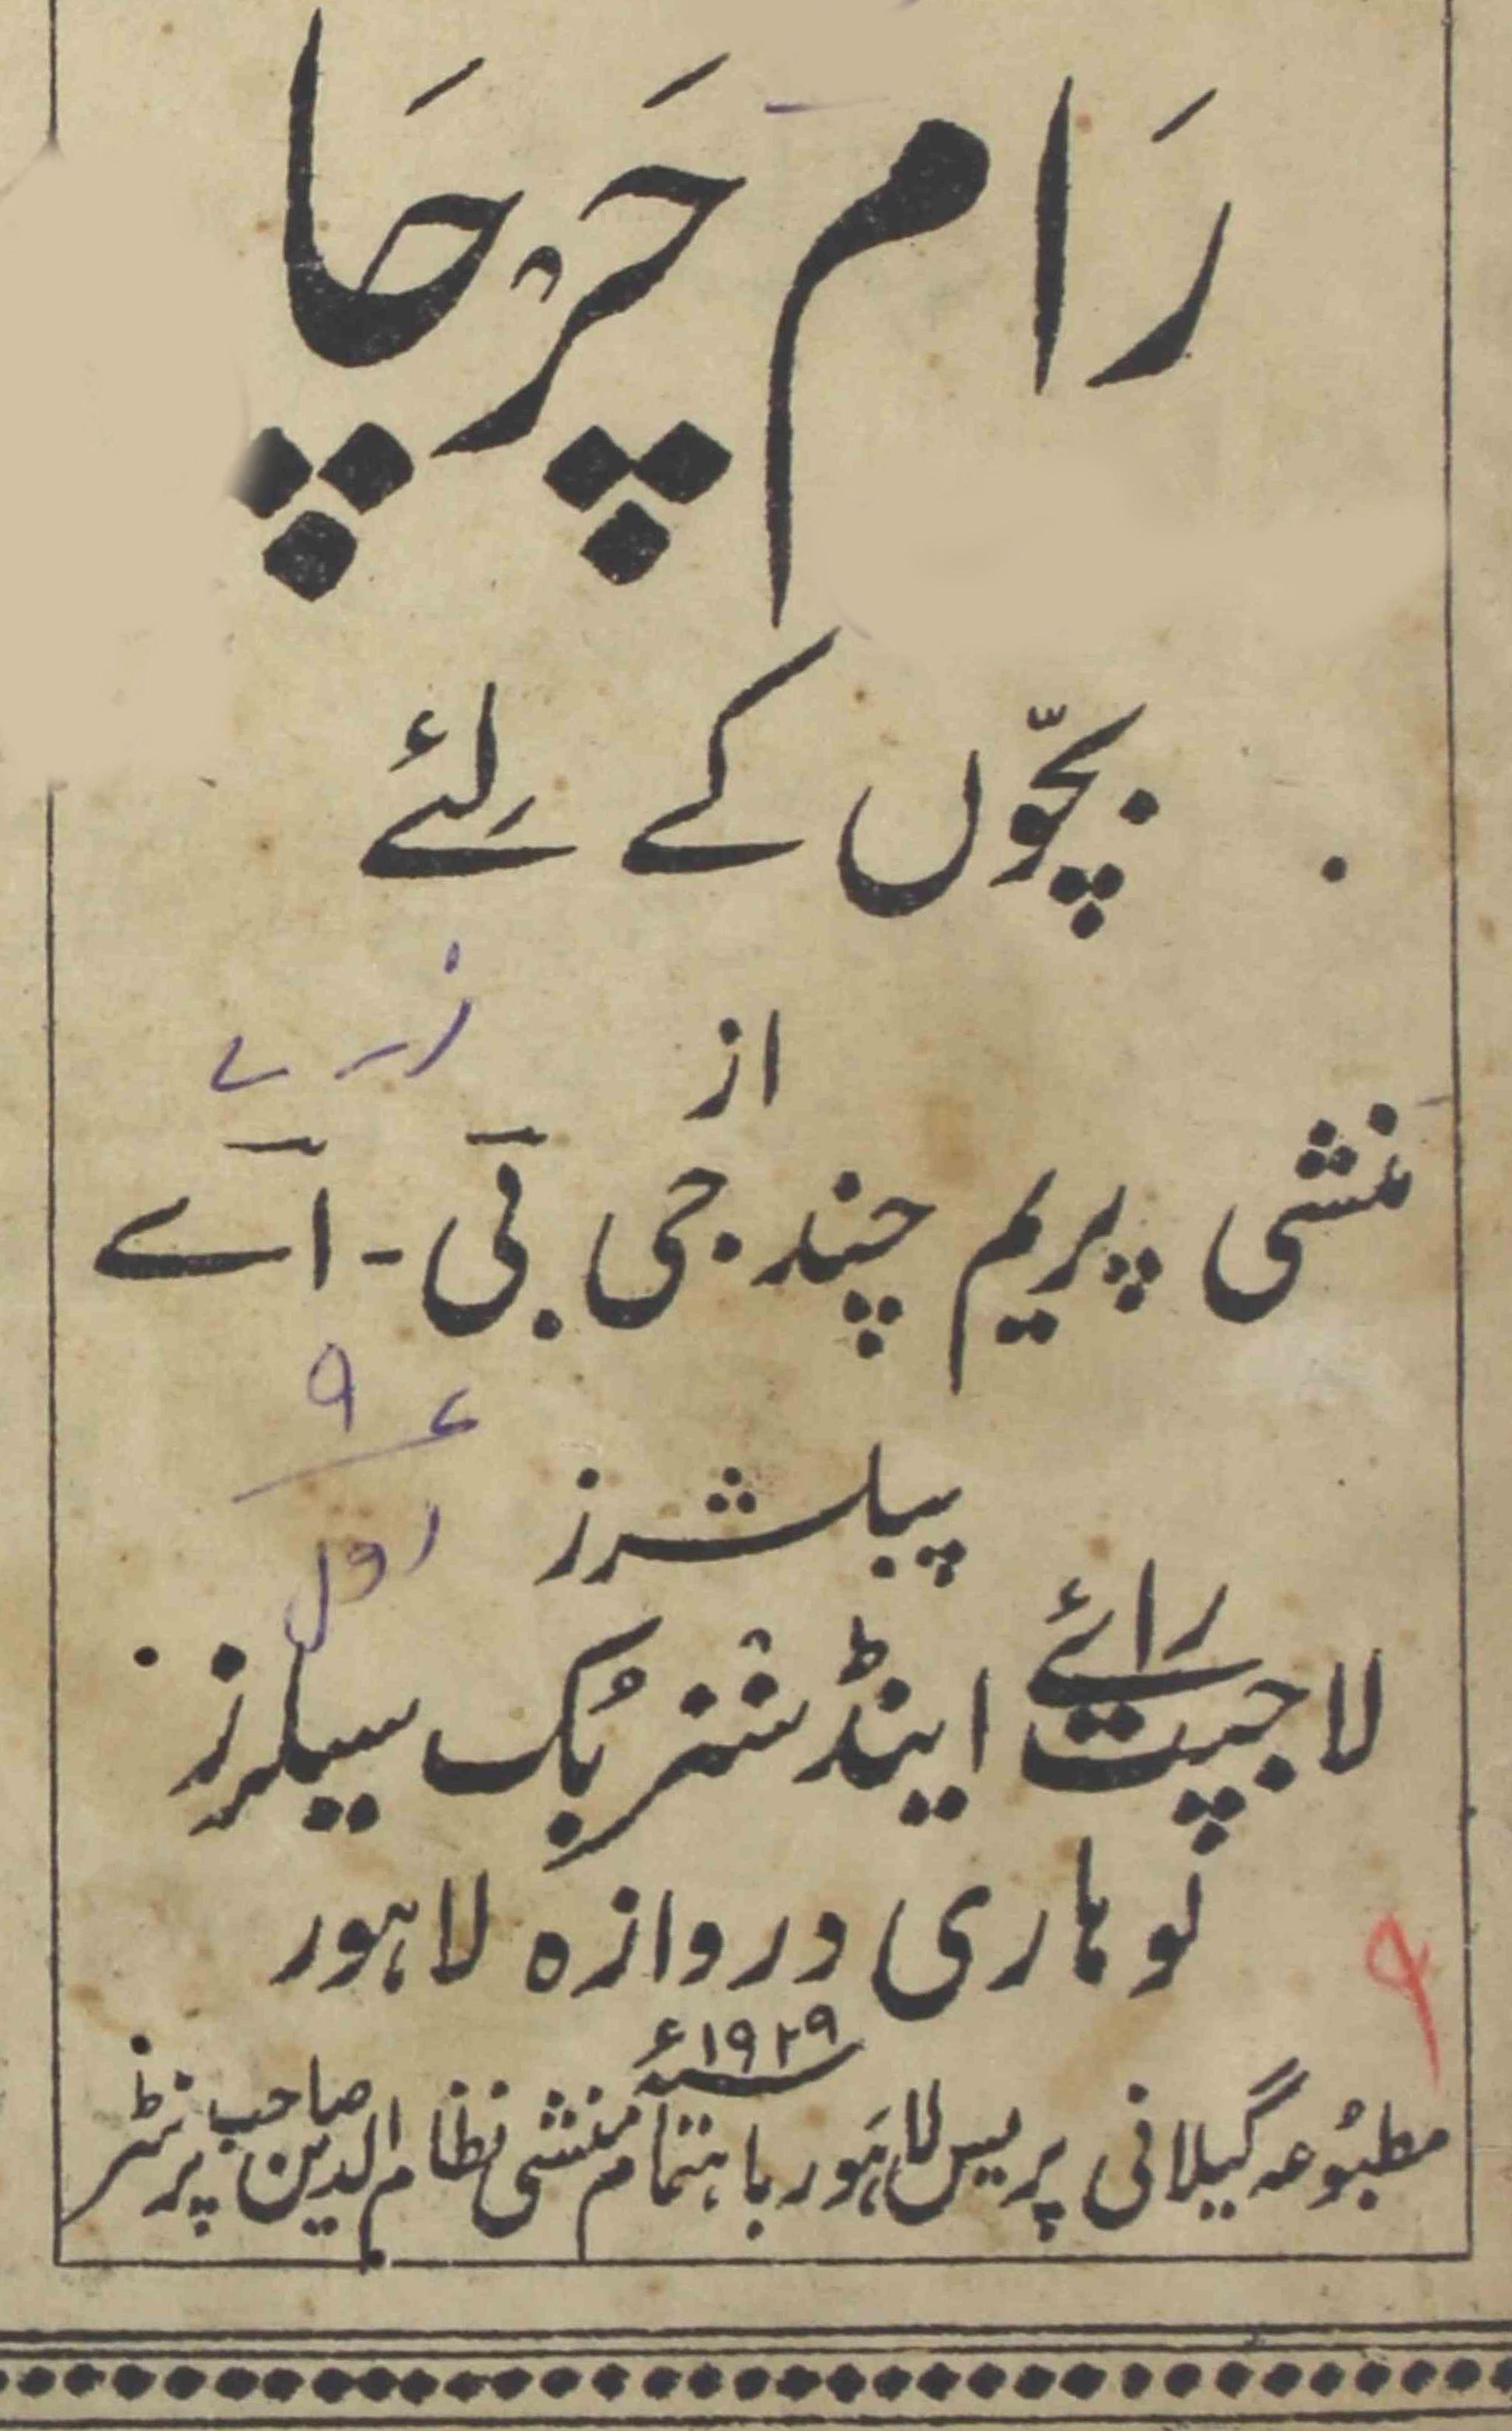 رَام چَرْچَا
بچّوں کے لِئے
از
منشی پریم چند جی بی - اے
پبلشرز
لاجپت رائے اینڈ سنز بُک سیلرز
لوہاری دروازہ لاہور
۱۹۲۹ء
مطبُوعہ گیلانی پریس لاہَور باہتمام منشی نظام الدین صاحب پرنٹر